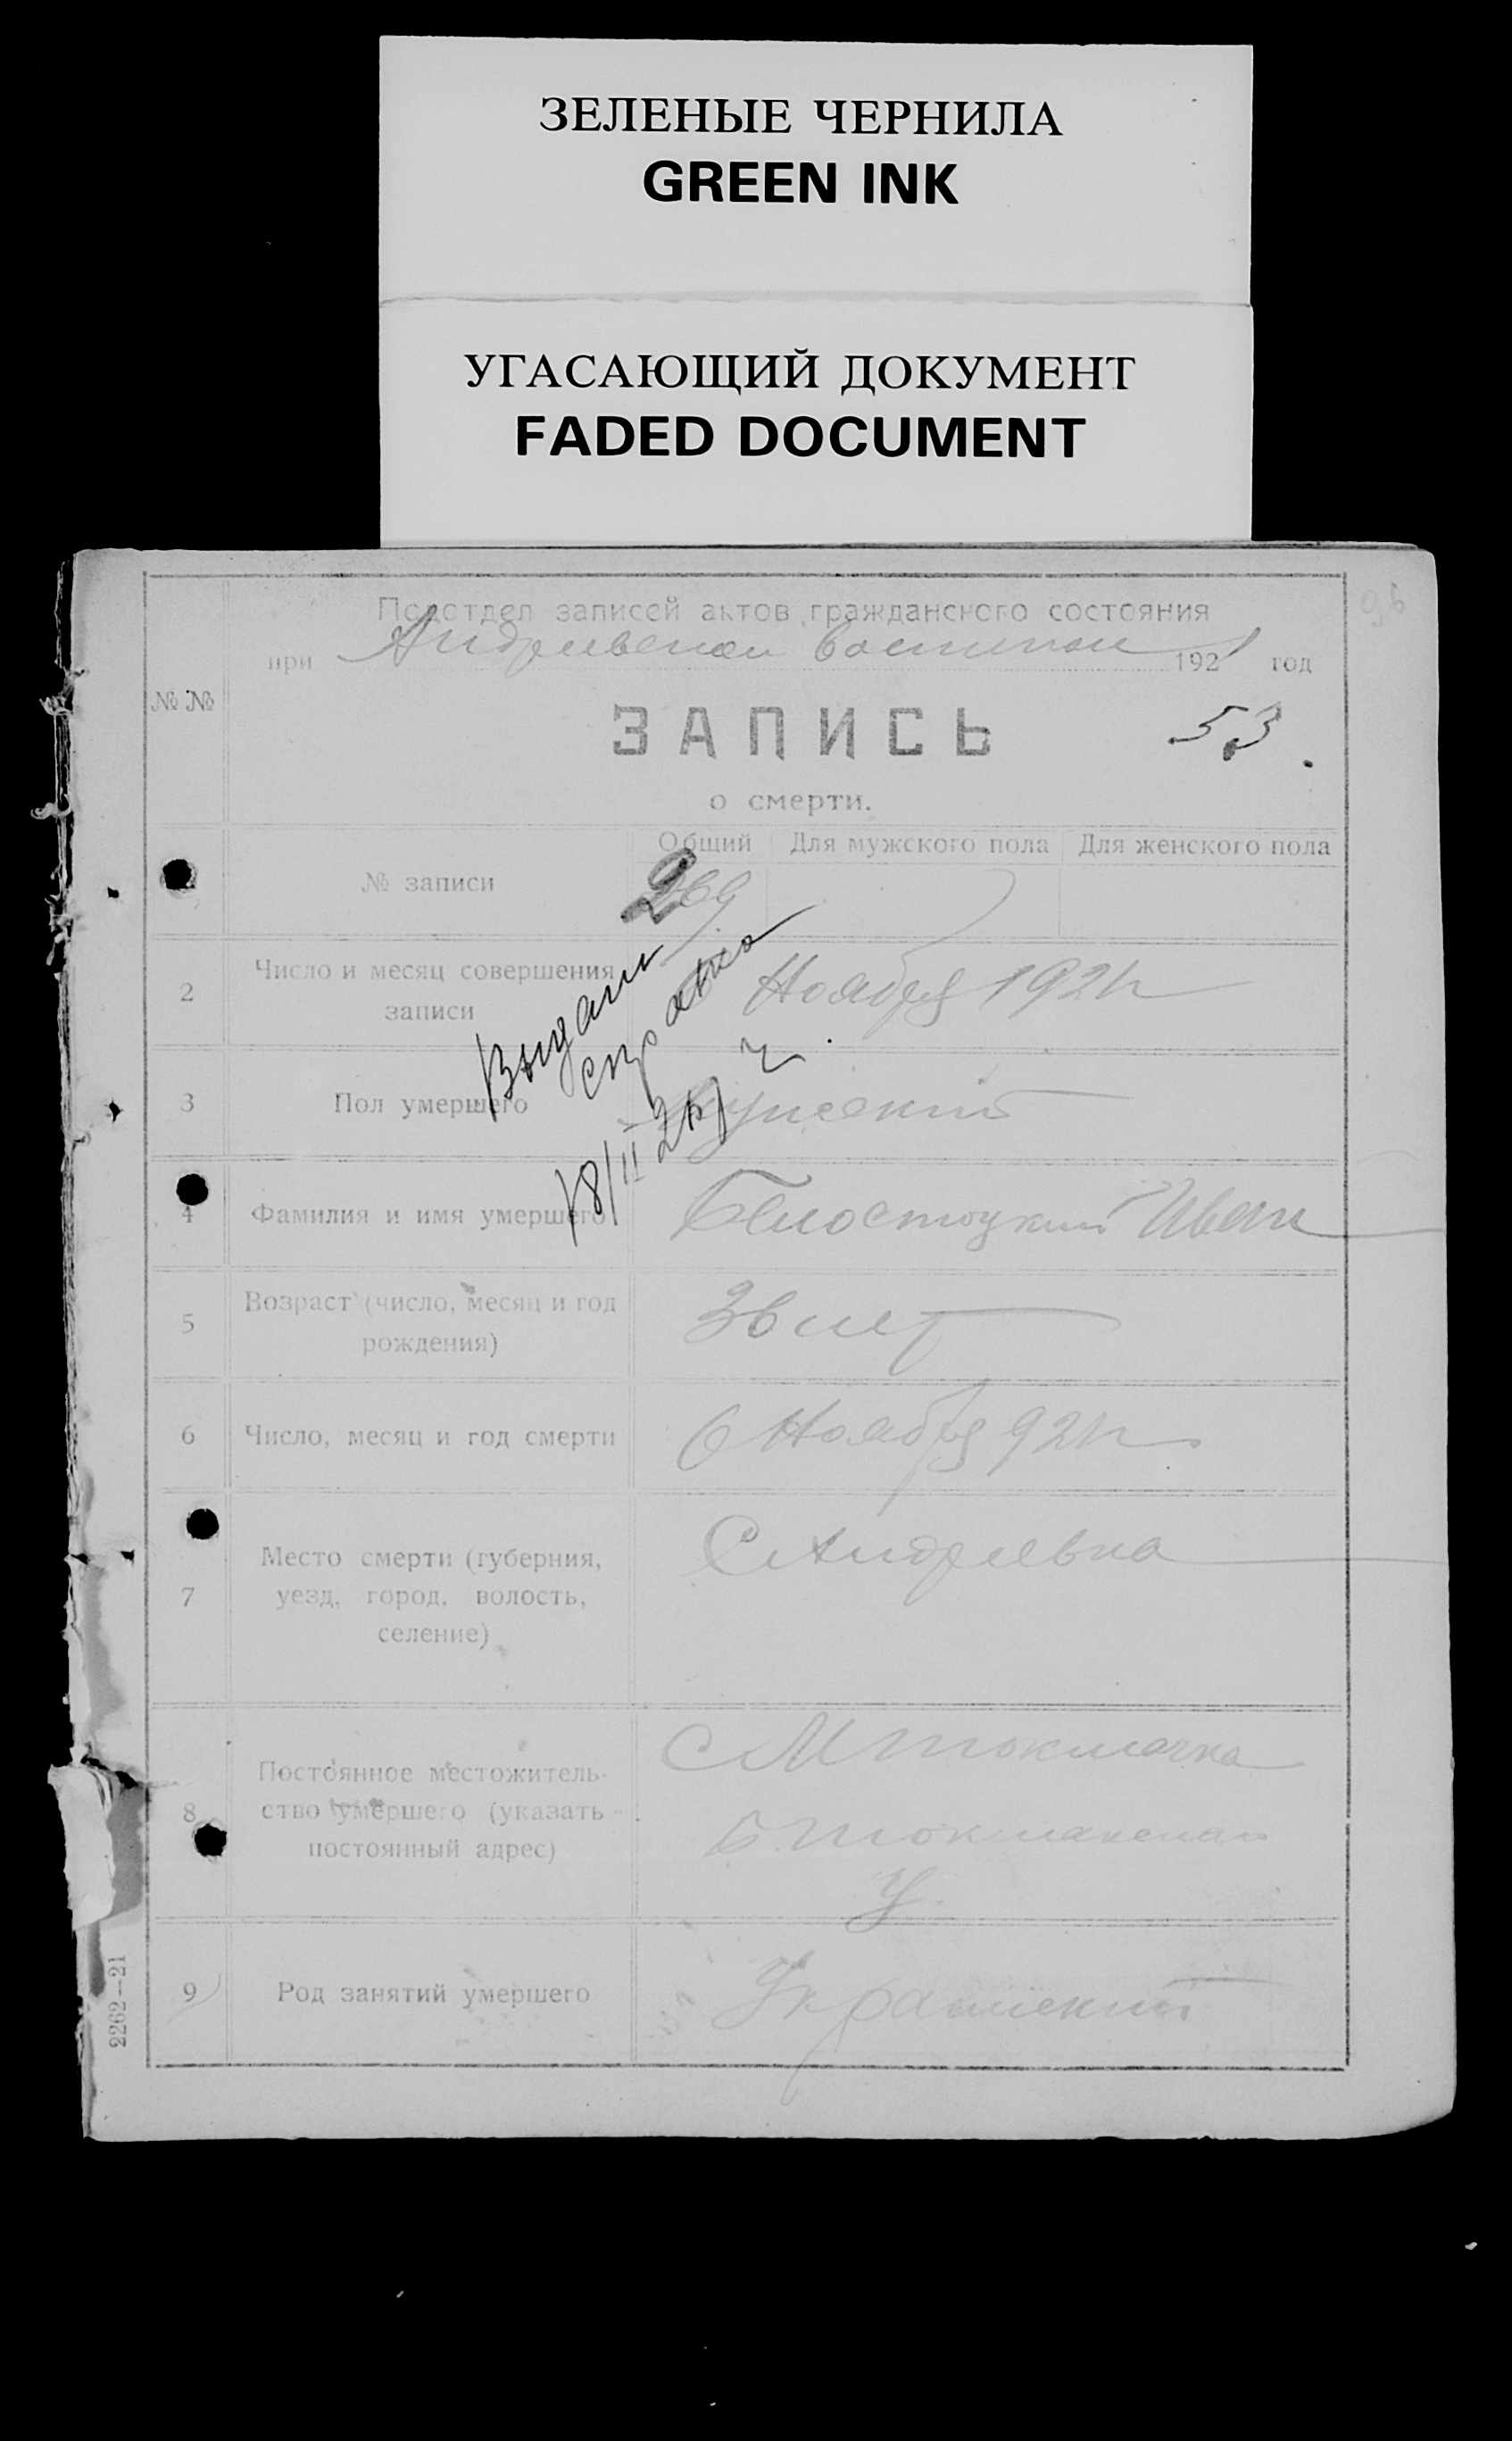 ЗЕЛЕНЫЕ ЧЕРНИЛА
GREEN INK
УГАСАЮЩИЙ ДОКУМЕНТ
FADED DOCUMENT
96
Подотдел записей актов гражданского состояния
при Андреевской волости 1921 год
№ №
ЗАПИСЬ
53.
о смерти.
Общий Для мужского пола Для женского пола
№ записи 269
2 Число и месяц совершения записи Ноября 1921г
Выдана
справка
18/II 24 г
3 Пол умершего Мужский
4 Фамилия и имя умершего Белостоцкий Иван
5 Возраст (число, месяц и год рождения) 36 лет
6 Число, месяц и год смерти 6 Ноября 921г
7 Место смерти (губерния, уезд, город, волость, селение) С Андреевка
8 Постоянное местожитель-
ство умершего (указать
постоянный адрес)
С М Токмачка
Б Токмакского
У
9 Род занятий умершего
2262—21